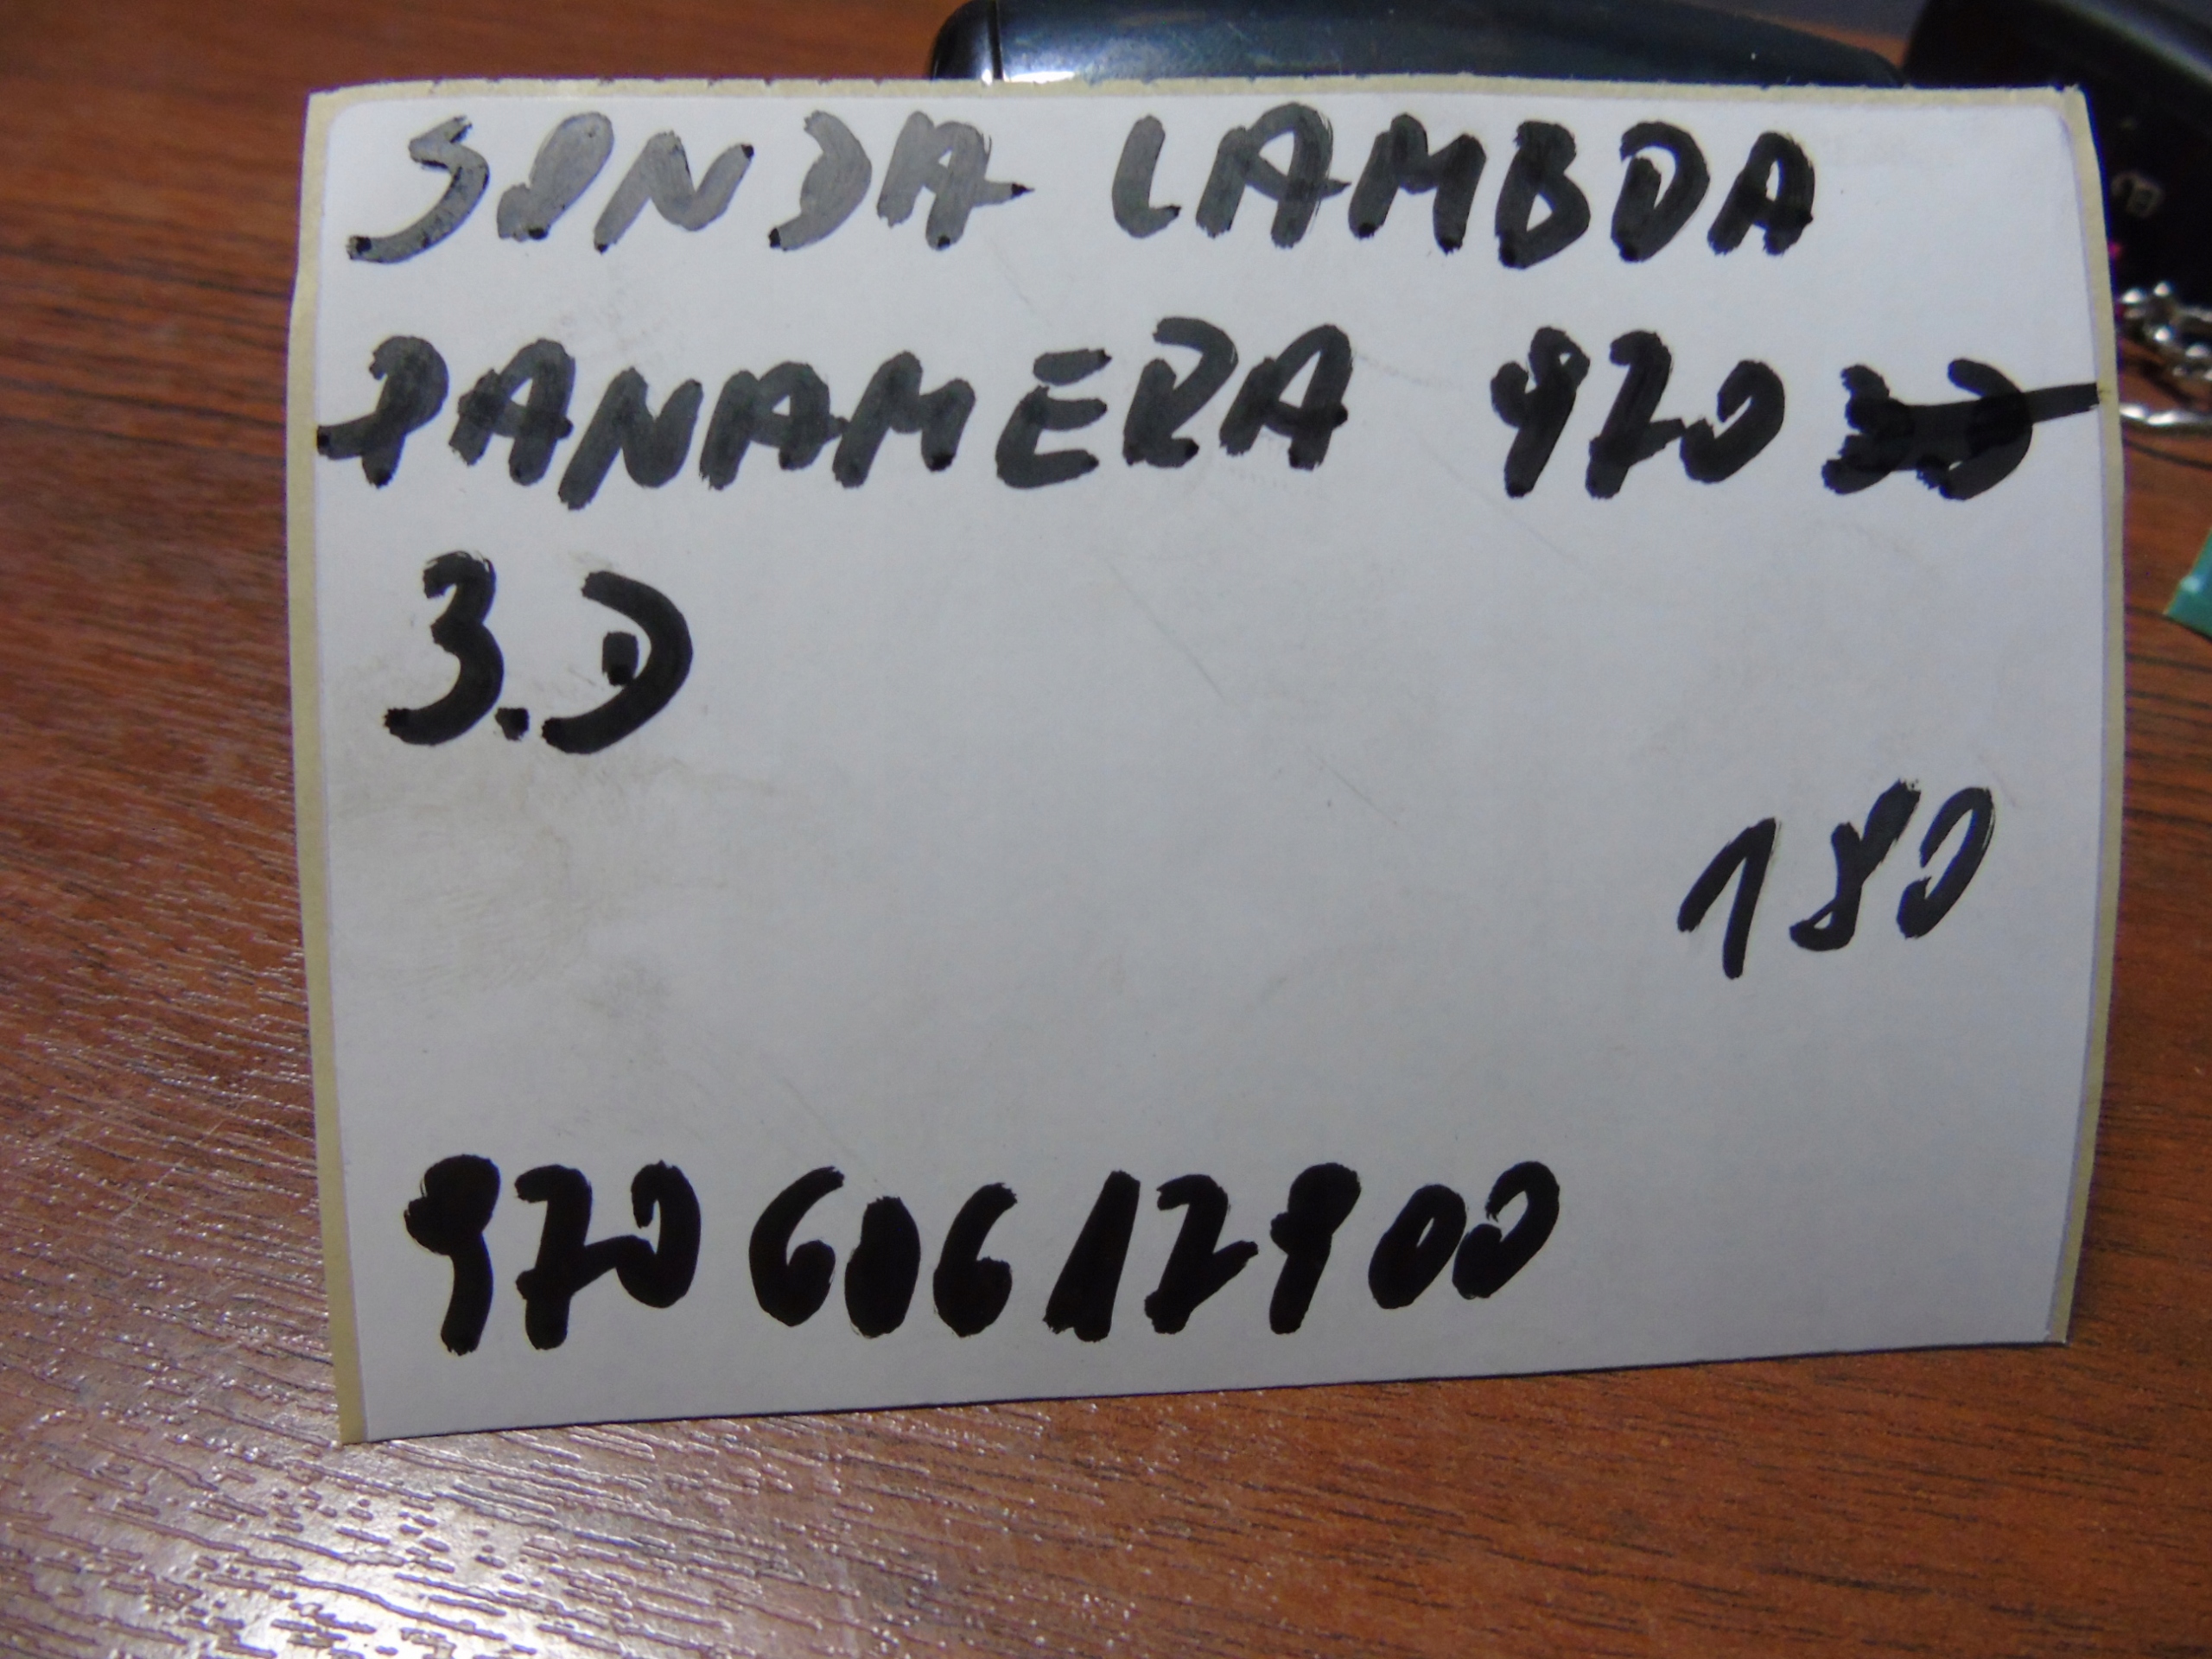 SONDA LAMBDA
PANAMERA 970
3.0
180
970 606 129 00